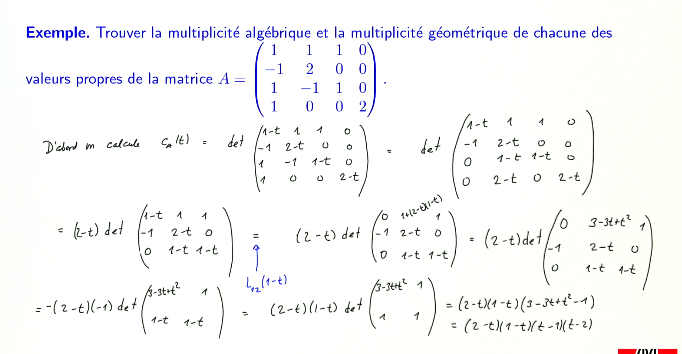 Exemple. Trouver la multiplicité algébrique et la multiplicité géométrique de chacune des
valeurs propres de la matrice A = \begin{pmatrix} 1 & 1 & 1 & 0 \\ -1 & 2 & 0 & 0 \\ 1 & -1 & 1 & 0 \\ 1 & 0 & 0 & 2 \end{pmatrix}.
D'abord on calcule c_A(t) = det \begin{pmatrix} 1-t & 1 & 1 & 0 \\ -1 & 2-t & 0 & 0 \\ 1 & -1 & 1-t & 0 \\ 1 & 0 & 0 & 2-t \end{pmatrix} = det \begin{pmatrix} 1-t & 1 & 1 & 0 \\ -1 & 2-t & 0 & 0 \\ 0 & 1-t & 1-t & 0 \\ 0 & 2-t & 0 & 2-t \end{pmatrix}
= (2-t) det \begin{pmatrix} 1-t & 1 & 1 \\ -1 & 2-t & 0 \\ 0 & 1-t & 1-t \end{pmatrix} = (2-t) det \begin{pmatrix} 0 & 1+(2-t)(1-t) & 1 \\ -1 & 2-t & 0 \\ 0 & 1-t & 1-t \end{pmatrix} = (2-t) det \begin{pmatrix} 0 & 3-3t+t^2 & 1 \\ -1 & 2-t & 0 \\ 0 & 1-t & 1-t \end{pmatrix}
L_{12}(1-t)
= -(2-t)(-1) det \begin{pmatrix} 3-3t+t^2 & 1 \\ 1-t & 1-t \end{pmatrix} = (2-t)(1-t) det \begin{pmatrix} 3-3t+t^2 & 1 \\ 1 & 1 \end{pmatrix} = (2-t)(1-t)(3-3t+t^2-1)
= (2-t)(1-t)(t-1)(t-2)